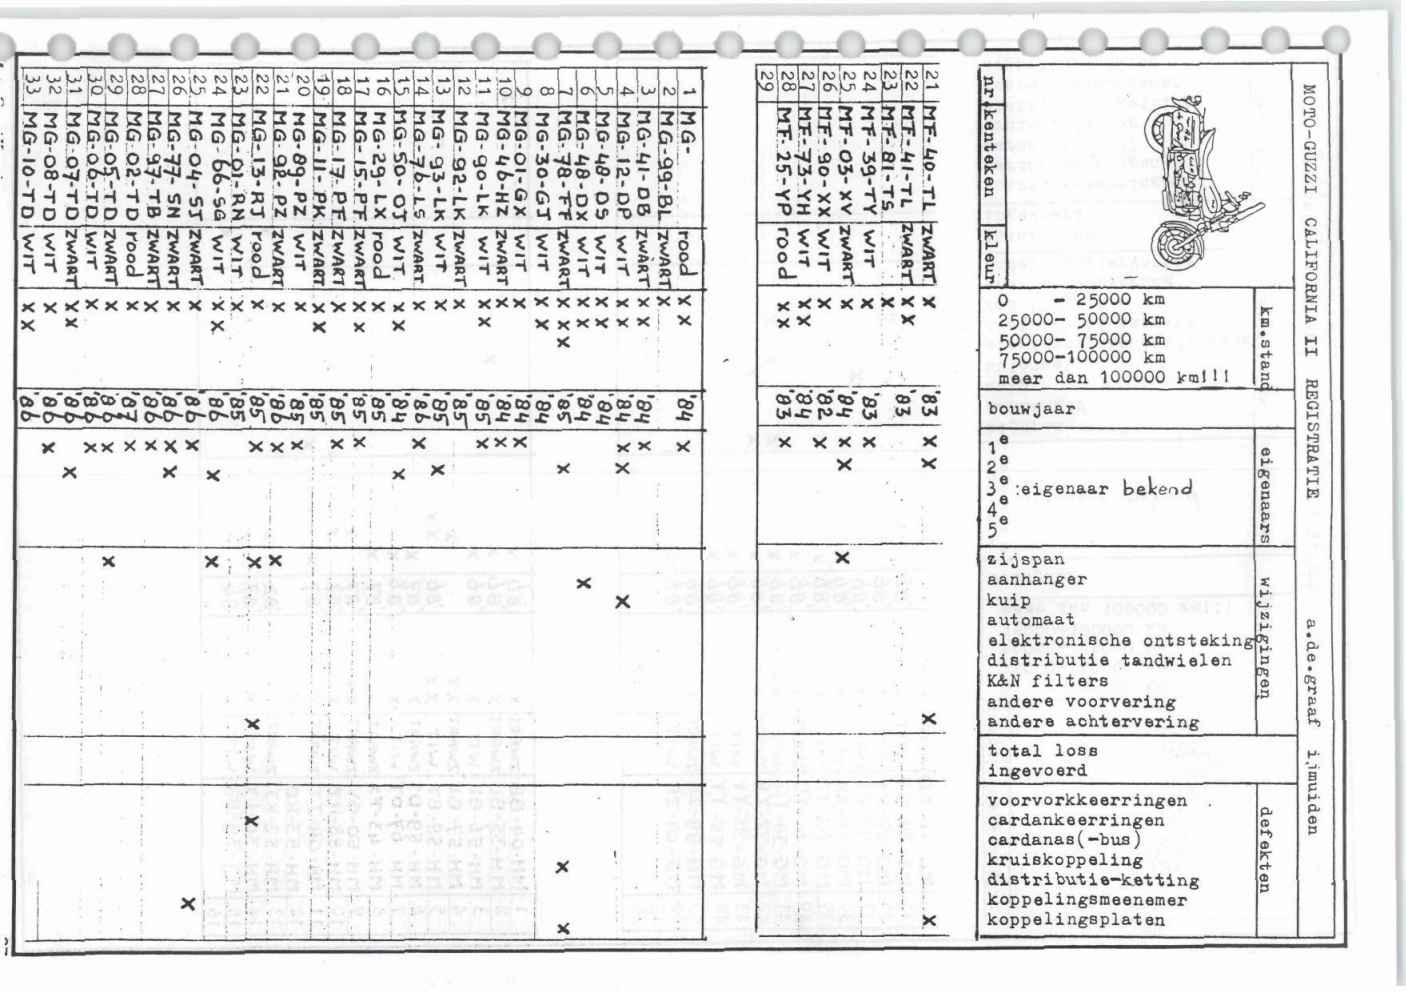 MOTO-GUZZI CALIFORNIA II REGISTRATIE a.de.graaf ijmuiden
nr. kenteken kleur
km.stand
0 - 25000 km
25000- 50000 km
50000- 75000 km
75000-100000 km
meer dan 100000 km!!!
bouwjaar
eigenaars
1e
2e
3e :eigenaar bekend
4e
5e
wijzigingen
zijspan
aanhanger
kuip
automaat
elektronische ontsteking
distributie tandwielen
K&N filters
andere voorvering
andere achtervering
total loss
ingevoerd
defekten
voorvorkkeerringen
cardankeerringen
cardanas(-bus)
kruiskoppeling
distributie-ketting
koppelingsmeenemer
koppelingsplaten
21 MF-40-TL ZWART X '83 X X X X
22 MF-41-TL ZWART X X '83
23 MF-81-TS X
24 MF-39-TV WIT X '83 X
25 MF-03-XV ZWART X '84 X X X
26 MF-90-XX WIT X '82 X
27 MF-73-YH WIT X X '84
28 MF-25-YP rood X X '83 X
29
1 MG- rood X X '84 X
2 MG-99-BL ZWART X
3 MG-41-DB ZWART X X '84 X
4 MG-12-DP WIT X X '84 X X X
5 MG-48-DS ZWART X '84
6 MG-48-DX WIT X '84 X
7 MG-78-FF ZWART X X X '85 X X X
8 MG-30-GT WIT X X '84
9 MG-01-GX WIT X '84 X
10 MG-46-HZ ZWART X '84 X
11 MG-90-LK WIT X X '85 X
12 MG-92-LK ZWART X '85
13 MG-93-LK WIT X '85 X
14 MG-76-LS ZWART X '86 X
15 MG-50-OT WIT X X '84 X
16 MG-29-LX rood X '85
17 MG-15-PF ZWART X X '85 X
18 MG-17-PF ZWART X '85 X
19 MG-11-PK ZWART X X '85
20 MG-89-PZ WIT X '85 X
21 MG-92-PZ ZWART X '86 X X
22 MG-13-RJ rood X '85 X X X X
23 MG-01-RN WIT X '85
24 MG-66-SG WIT X X '86 X X
25 MG-04-SJ ZWART X '86 X X
26 MG-77-SN ZWART X '86 X X
27 MG-97-TB ZWART X '86 X
28 MG-02-TD rood X '87 X
29 MG-05-TD ZWART X '86 X X
30 MG-06-TD WIT X '86 X
31 MG-07-TD ZWART X X '86 X
32 MG-08-TD WIT X '86 X
33 MG-10-TD WIT X X '86